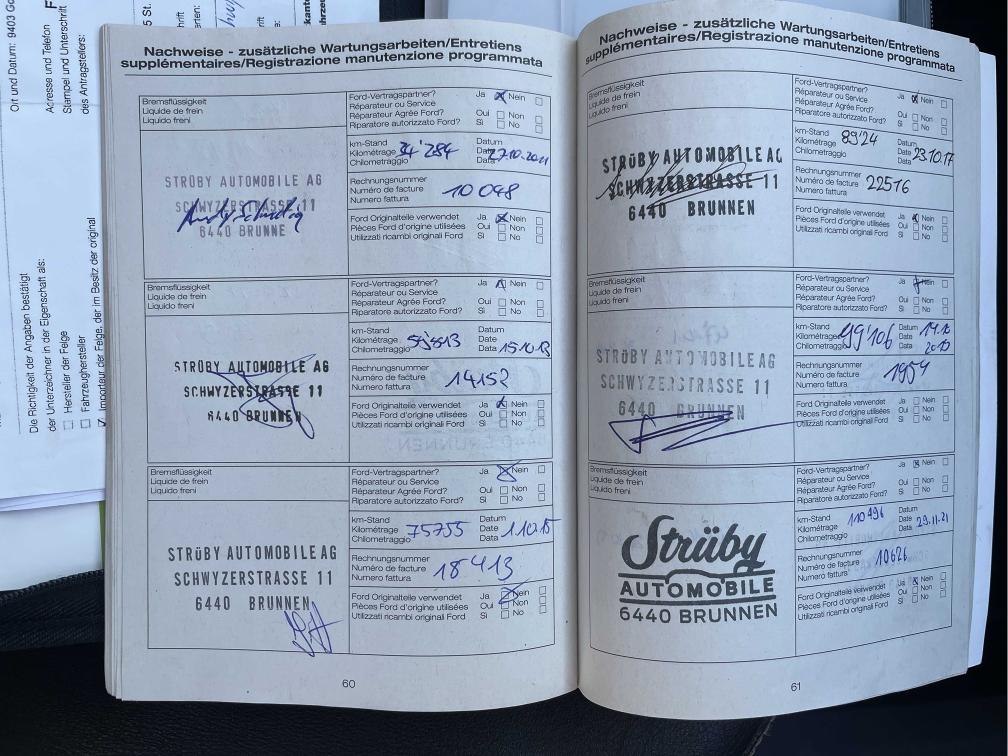 Ort und Datum: 9403 Go
Adresse und Telefon
Stempel und Unterschrift
des Antragstellers:
Die Richtigkeit der Angaben bestätigt
der Unterzeichner in der Eigenschaft als:
Hersteller der Felge
Fahrzeughersteller
Importeur der Felge, der im Besitz der original
Nachweise - zusätzliche Wartungsarbeiten/Entretiens
supplémentaires/Registrazione manutenzione programmata
Bremsflüssigkeit
Liquide de frein
Liquido freni
STRÜBY AUTOMOBILE AG
SCHWYZERSTRASSE 11
6440 BRUNNE
Ford-Vertragspartner? Ja Nein
Réparateur ou Service
Réparateur Agrée Ford? Oui Non
Riparatore autorizzato Ford? Si No
km-Stand Datum
Kilométrage 34'284 Date
Chilometraggio Data
Rechnungsnummer
Numéro de facture 10048
Numero fattura
Ford Originalteile verwendet Ja Nein
Pièces Ford d'origine utilisées Oui Non
Utilizzati ricambi originali Ford Si No
Bremsflüssigkeit
Liquide de frein
Liquido freni
STRÜBY AUTOMOBILE AG
SCHWYZERSTRASSE 11
6440 BRUNNEN
Ford-Vertragspartner? Ja Nein
Réparateur ou Service
Réparateur Agrée Ford? Oui Non
Riparatore autorizzato Ford? Si No
km-Stand Datum
Kilométrage Date
Chilometraggio Data 15.10.13
Rechnungsnummer
Numéro de facture 14152
Numero fattura
Ford Originalteile verwendet Ja Nein
Pièces Ford d'origine utilisées Oui Non
Utilizzati ricambi originali Ford Si No
Bremsflüssigkeit
Liquide de frein
Liquido freni
STRÜBY AUTOMOBILE AG
SCHWYZERSTRASSE 11
6440 BRUNNEN
Ford-Vertragspartner? Ja Nein
Réparateur ou Service
Réparateur Agrée Ford? Oui Non
Riparatore autorizzato Ford? Si No
km-Stand Datum
Kilométrage 75755 Date 1.10.15
Chilometraggio Data
Rechnungsnummer
Numéro de facture 18413
Numero fattura
Ford Originalteile verwendet Ja Nein
Pièces Ford d'origine utilisées Oui Non
Utilizzati ricambi originali Ford Si No
60
Nachweise - zusätzliche Wartungsarbeiten/Entretiens
supplémentaires/Registrazione manutenzione programmata
Bremsflüssigkeit
Liquide de frein
Liquido freni
STRÜBY AUTOMOBILE AG
SCHWYZERSTRASSE 11
6440 BRUNNEN
Ford-Vertragspartner? Ja Nein
Réparateur ou Service
Réparateur Agrée Ford? Oui Non
Riparatore autorizzato Ford? Si No
km-Stand Datum
Kilométrage 89'24 Date 23.10.17
Chilometraggio Data
Rechnungsnummer
Numéro de facture 22516
Numero fattura
Ford Originalteile verwendet Ja Nein
Pièces Ford d'origine utilisées Oui Non
Utilizzati ricambi originali Ford Si No
Bremsflüssigkeit
Liquide de frein
Liquido freni
STRÜBY AUTOMOBILE AG
SCHWYZERSTRASSE 11
6440 BRUNNEN
Ford-Vertragspartner? Ja
Réparateur ou Service
Réparateur Agrée Ford? Oui Non
Riparatore autorizzato Ford? Si No
km-Stand Datum
Kilométrage 99'106 Date
Chilometraggio Data 2019
Rechnungsnummer
Numéro de facture 1954
Numero fattura
Ford Originalteile verwendet Ja Nein
Pièces Ford d'origine utilisées Oui Non
Utilizzati ricambi originali Ford Si No
Bremsflüssigkeit
Liquide de frein
Liquido freni
Strüby
AUTOMOBILE
6440 BRUNNEN
Ford-Vertragspartner? Ja Nein
Réparateur ou Service
Réparateur Agrée Ford? Oui Non
Riparatore autorizzato Ford? Si No
km-Stand Datum
Kilométrage 110 496 Date 29.11.21
Chilometraggio Data
Rechnungsnummer
Numéro de facture 10626
Numero fattura
Ford Originalteile verwendet Ja Nein
Pièces Ford d'origine utilisées Oui Non
Utilizzati ricambi originali Ford Si No
61